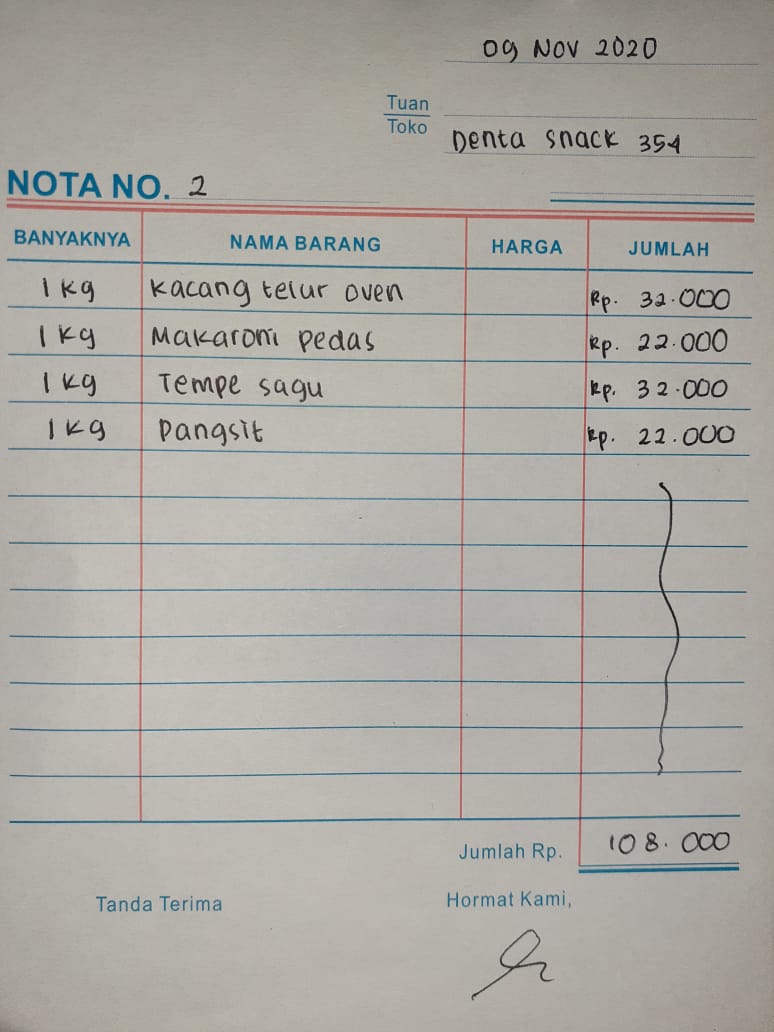 09 NOV 2020
Tuan
Toko
Denta snack 354
NOTA NO. 2
BANYAKNYA NAMA BARANG HARGA JUMLAH
1 kg kacang telur oven Rp. 32.000
1 kg Makaroni pedas Rp. 22.000
1 kg Tempe sagu Rp. 32.000
1 kg Pangsit Rp. 22.000
Jumlah Rp. 108.000
Tanda Terima Hormat Kami,